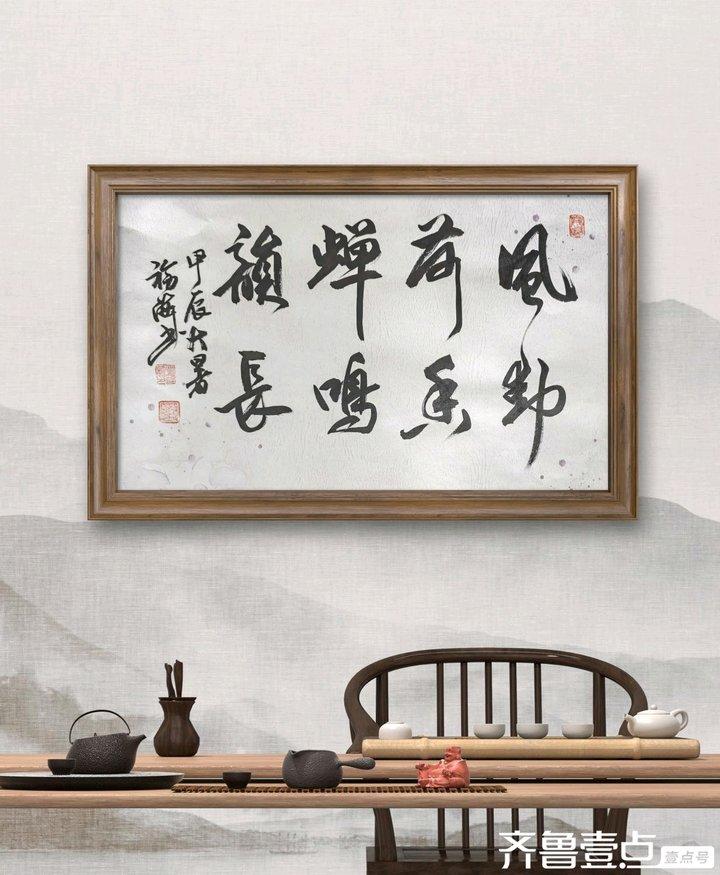 風動
荷香
蝉鳴
韻長
甲辰大暑
齐鲁壹点
壹点号